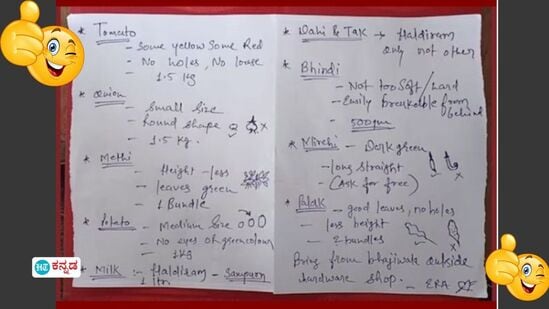 * Tomato
- Some yellow Some Red
- No holes, No louse
- 1.5 kg
* Onion
- Small size
- Round shape
- 1.5 kg.
* Methi
- Height - less
- leaves green
- 1 Bundle
* Potato
- Medium Size
- No eyes or green colour
- 1 KG
* Milk :- Haldiram - Sampurn
1 ltr.
* Dahi & Tak → Haldiram
only not other
* Bhindi
- Not too Soft / hard
- Easily breakable from behind
- 500gm
* Mirchi - Dark green
- long straight
- (Ask for free)
* Palak - good leaves, no holes
- less height
- 2 bundles
Bring from bhajiwala outside
hardware shop.
HT ಕನ್ನಡ